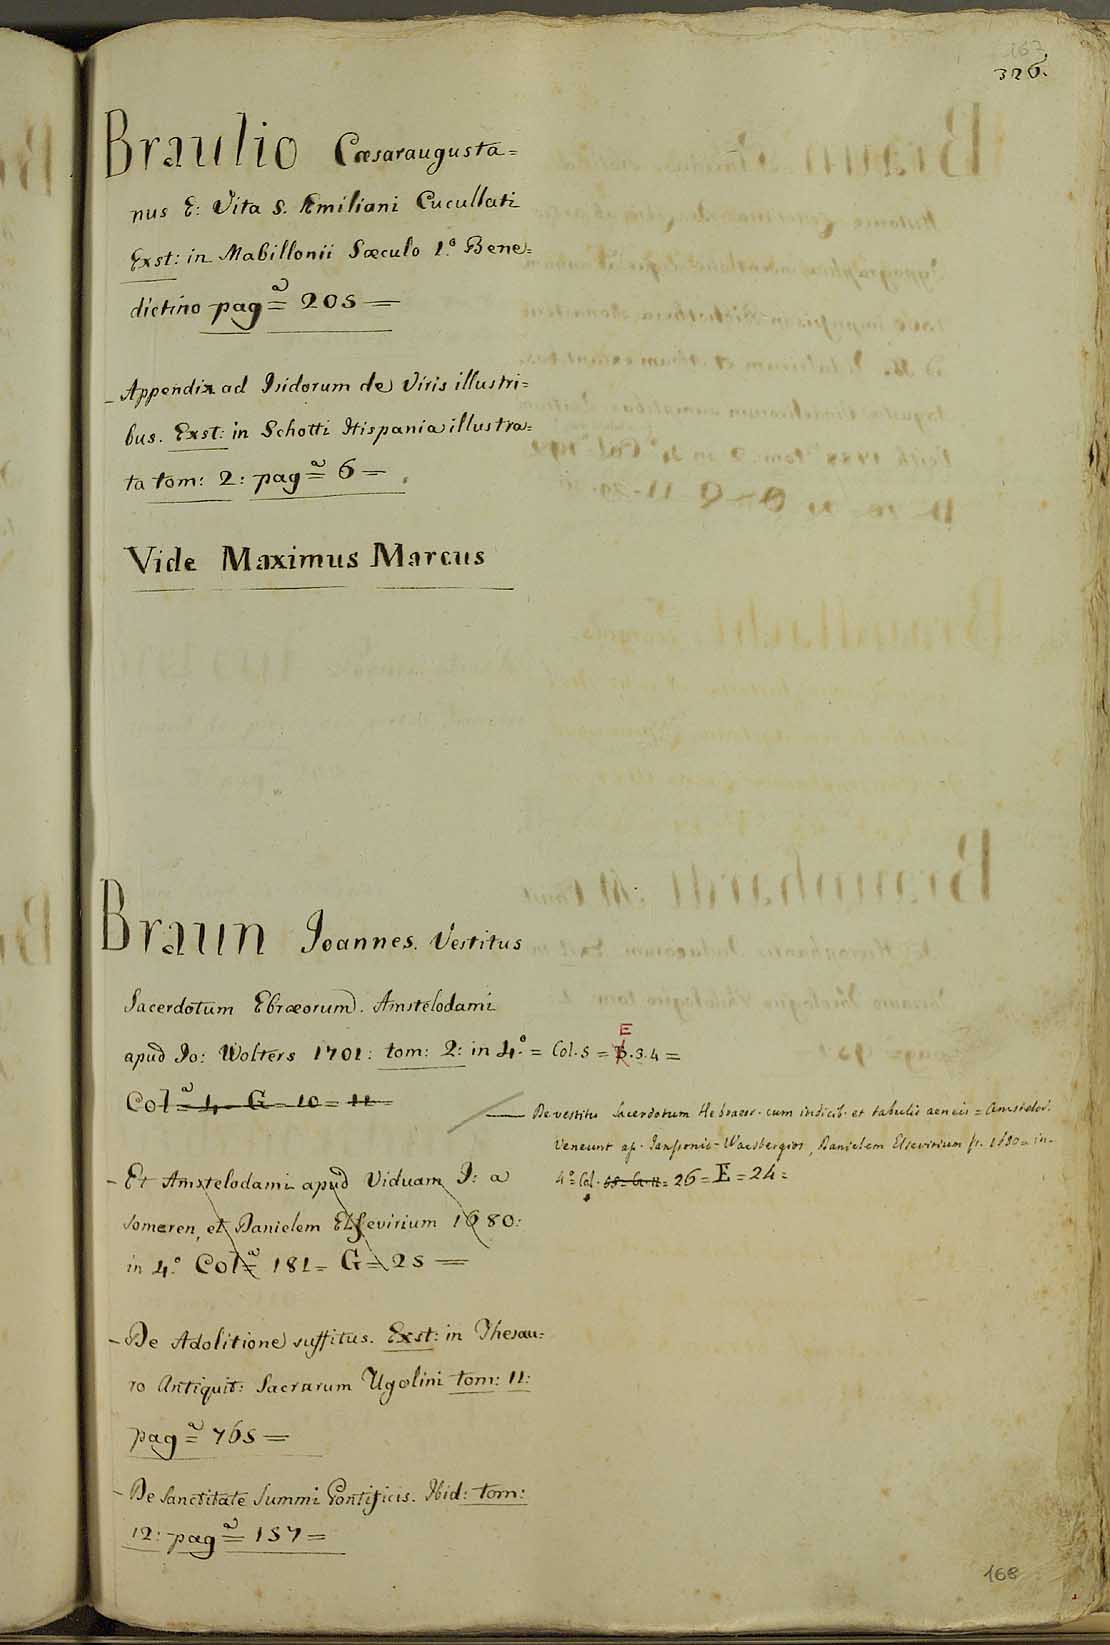 163
326.
Braulio Cæsaraugusta=
nus E: Vita S. Æmiliani Cucullati
Exst: in Mabillonii Sæculo 1.º Bene=
dictino pagª= 205 =
- Appendix ad Isidorum de Viris illustri=
bus. Exst: in Schotti Hispania illustra=
ta tom: 2: pagª= 6 =
Vide Maximus Marcus
Braun Joannes. Vestitus
Sacerdotum Ebræorum. Amstelodami
apud Jo: Wolters 1701: tom: 2: in 4.º = Col. 5 = E . 3. 4 =
Colª= 4 = G = 10 = 11 =
— De vestitu Sacerdotum Hebraeor. cum indicib. et tabulis aeneis = Amstelod.
Veneunt ap. Janssonio-Waesbergios, Danielem Elsevirium fr. 1680 = in-
4º = Col. = 26 = E = 24 =
- Et Amstelodami apud Viduam J: a
Someren, et Danielem Elsevirium 1680:
in 4.º Colª= 181 = G = 25 =
- De Adolitione suffitus. Exst: in Thesau=
ro Antiquit: Sacrarum Ugolini tom: 11:
pagª= 765 =
- De Sanctitate Summi Pontificis. Ibid: tom:
12: pagª= 157 =
168